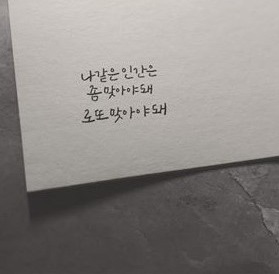 나같은 인간은
좀 맞아야 돼
로또 맞아야 돼